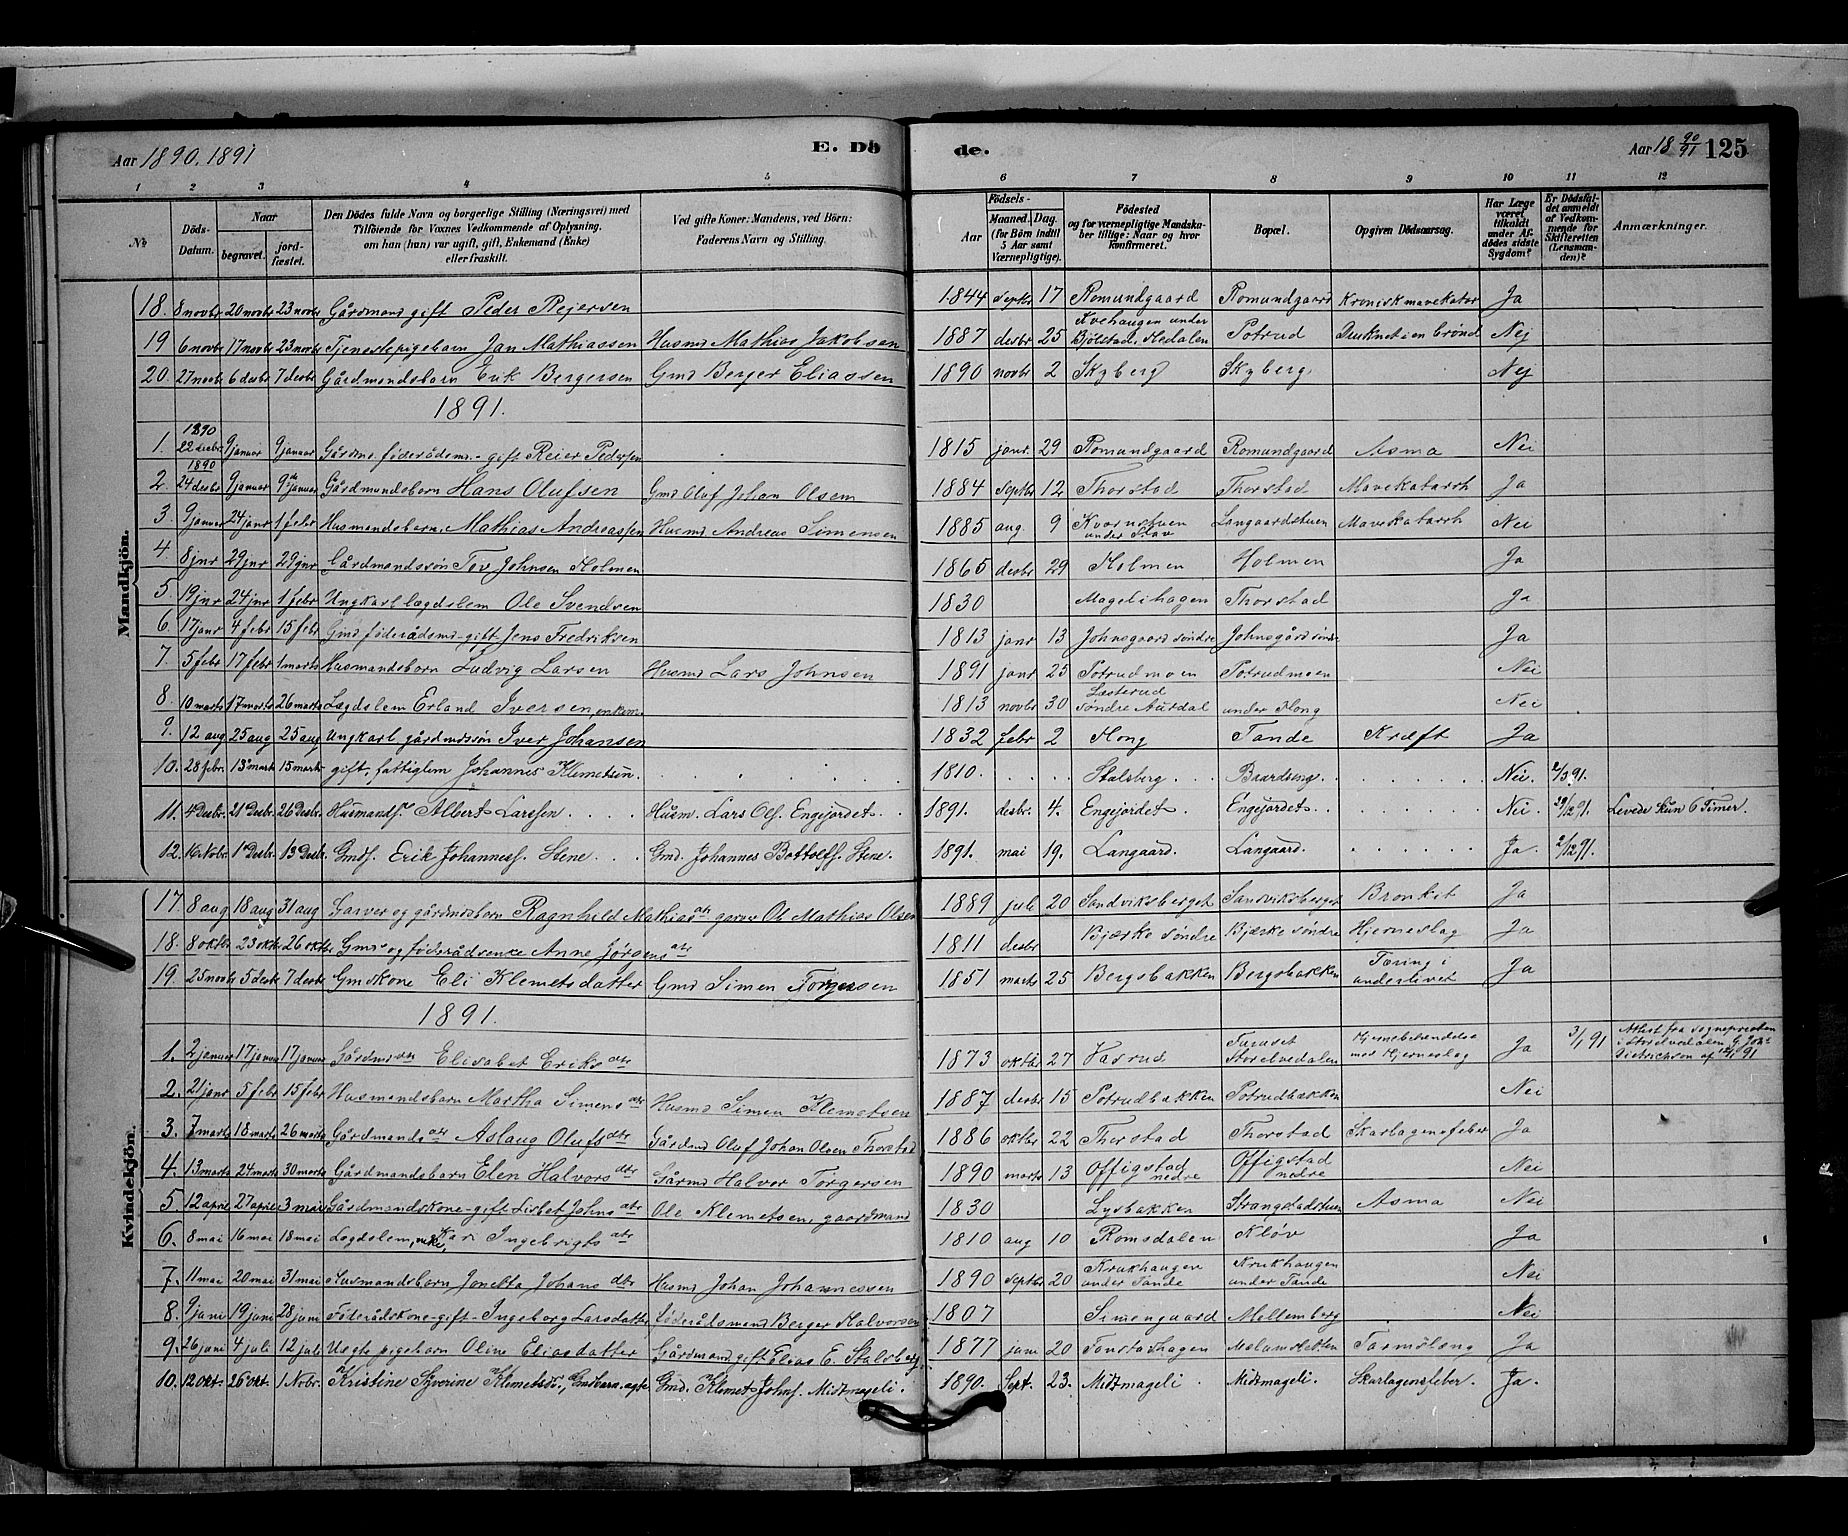 Aar 1890. 1891
E. Dö
de.
Aar 18 90/91
125
1 2 3 4 5 6 7 8 9 10 11 12
No
Döds-Datum.
Naar
begravet.
jordfæstet.
Den Dödes fulde Navn og borgerlige Stilling (Næringsvei) med
Tilföiende for Voxnes Vedkommende af Oplysning,
om han (hun) var ugift, gift, Enkemand (Enke)
eller fraskilt.
Ved gifte Koner: Mandens, ved Börn:
Faderens Navn og Stilling.
Födsels-
Aar
Maaned. (for Börn indtil 5 Aar samt Værnepligtige).
Dag.
Födested
og for værnepligtige Mandskaber tillige: Naar og hvor konfirmeret.
Bopæl.
Opgiven Dödsaarsag.
Har Læge været tilkaldt under Afdödes sidste Sygdom?
Er Dödsfaldet anmeldt af Vedkommende for Skifteretten (Lensmanden)?
Anmærkninger.
Mandkjön.
18. 8 novbr 20 novbr 23 novbr Gårdmand gift Peder Rejersen 1844 septbr 17 Romundgaard Romundgaard Kronisk mavekatar Ja
19 6 novbr 17 novbr 23 novbr Tjenestepigebarn Jan Mathiassen Husmd Mathias Jakobsen 1887 desbr 25 Kvehaugen under Bjølstad, Hedalen Potrud Druknet i en brønd Nej
20. 27 novbr 6 desbr 7 desbr Gårdmandsbarn Erik Bergersen Gmd Berger Eliassen 1890 novbr 2 Skyberg Skyberg Nej
1891.
1. 1890 22 desbr 9 januar 9 januar Gårdm. føderådsm. - gift Reier Pedersen 1815 janr 29 Romundgaard Romundgaard Asma Nei
2. 1890 24 desbr 9 januar 9 januar Gårdmandsbarn Hans Olufsen Gmd Oluf Johan Olsen 1884 Septbr 12 Thorstad Thorstad Mavekatarrh Ja
3. 9 januar 24 janr 1 febr Husmandsbarn, Mathias Andreassen Husmd Andreas Simensen 1885 aug. 9 Kvernstuen under Skav Langaardstuen Mavekatarrh Nei
4. 8 jnr 29 jnr 29 jnr Gårdmandssøn Tov Johnsen Holmen 1865 desbr 29 Holmen Holmen Ja
5. 19 jnr 24 jnr 1 febr Ungkarl lægdslem Ole Svendsen 1830 Magelihagen Thorstad Ja
6. 17 janr 4 febr 15 febr Gmd føderådsmd - gift Jens Fredriksen 1813 janr 13 Johnsgaard søndre Johnsgård søndre Ja
7. 5 febr 17 febr 1 marts Husmandsbarn Ludvig Larsen Husmd Lars Johnsen 1891 janr 25 Potrudmoen Potrudmoen Nei
8. 10 marts 17 marts 26 marts Lægdslem Erland Iversen, enkem. 1813 novbr 30 Søndre Aurdal under Hong Nei
9. 12 aug 25 aug 25 aug Ungkarl gårdmdssøn Iver Johansen 1832 febr 2 Hong Tande Kræft Ja
10. 28 febr. 13 marts 15 marts gift, fattiglem Johannes Klemetsen 1810. Stalsberg Baardseng Nei. 2/3 91.
11. 4 Desbr. 21 Desbr. 26 Desbr. Husmandss. Albert Larssen Husm. Lars Ols. Engejordet 1891. desbr. 4. Engejordet Engejordet Nei 29/12 91. Levede kun 6 Timer.
12. 16 Novbr. 1 Desbr. 13 Desbr. Gmds. Erik Johanness. Stene Gmd. Johannes Bottolfs. Stene 1891. mai 19. Langaard. Langaard. Ja 2/12 91.
Kvindekjön.
17. 8 aug 18 aug 31 aug Garver og gårdmdsbarn Ragnhild Mathiasdtr garver Ol Mathias Olsen 1889 juli 20 Sandviksberget Sandviksberget Bronkit Ja
18. 8 oktbr 23 oktbr 26 oktbr Gmds og føderådsenke Anne Jørgensdtr 1811 desbr Bjærke søndre Bjærke søndre Hjerneslag Ja
19. 25 novbr 5 desbr 7 desbr Gmdskone Eli Klemetsdatter Gmd Simen Torgersen 1851 marts 25 Bergsbakken Bergsbakken Tæring i underlivet Ja
1891.
1. 2 januar 17 januar 17 januar Gårdmdsdtr Elisabet Eriksdtr 1873 oktbr 27 Vasrud Storelvedalen med Hjerneslag Ja 3/1 91 Attest fra sognepresten i Storelvedalen G. Joh. Dietrichson af 12/1 91
2. 21 janr 5 febr 15 febr Husmandsbarn Martha Simensdtr Husmd Simen Klemetsen 1887 desbr 15 Potrudbakken Potrudbakken Nei
3. 7 marts 18 marts 26 marts Gårdmandsdtr Aslaug Olufsdtr Gårdmd Oluf Johan Olsen Thorstad 1886 oktbr 22 Thorstad Thorstad Skarlagensfeber Ja
4. 13 marts 24 marts 30 marts Gårdmandsbarn Elen Halvorsdtr Gårmd Halvor Torgersen 1890 marts 13 Offigstad nedre Offigstad nedre Nei
5. 12 april 27 april 3 mai Gårdmandskone - gift Lisbet Johnsdtr Ole Klemetsen, gaardmand 1830 Lysbakken Strangstadstuen Asma Nei
6. 8 mai 16 mai 18 mai Legdslem, enke, Kari Ingebrigtsdtr 1810 aug 10 Romsdalen Kløv Ja
7. 11 mai 20 mai 31 mai Husmandsbarn Jonetta Johansdtr Husmd Johan Johannessen 1890 Septbr 20 Krukhaugen under Tande Krukhaugen under Tande Nei
8. 9 juni 19 juni 28 juni Føderådskone - gift - Ingeborg Larsdatter Føderådsmand Berger Halvorsen 1807 Simengaard Mellemberg Nei
9. 26 juni 4 juli 12 juli Uægte pigebarn Oline Eliasdatter Gårdmand gift Elias E. Stalsberg 1877 juni 20 Tonstadhagen Melumsletten Tarmslyng Ja
10. 12 Okt. 26 Okt. 1 Nobr. Kristine Syverine Klemetsdtr., Gmdbarn, ægte Gmd. Klemet Johs. Midtmageli. 1890. Sept. 23. Midtmageli. Midtmageli. Skarlagensfeber. Ja.